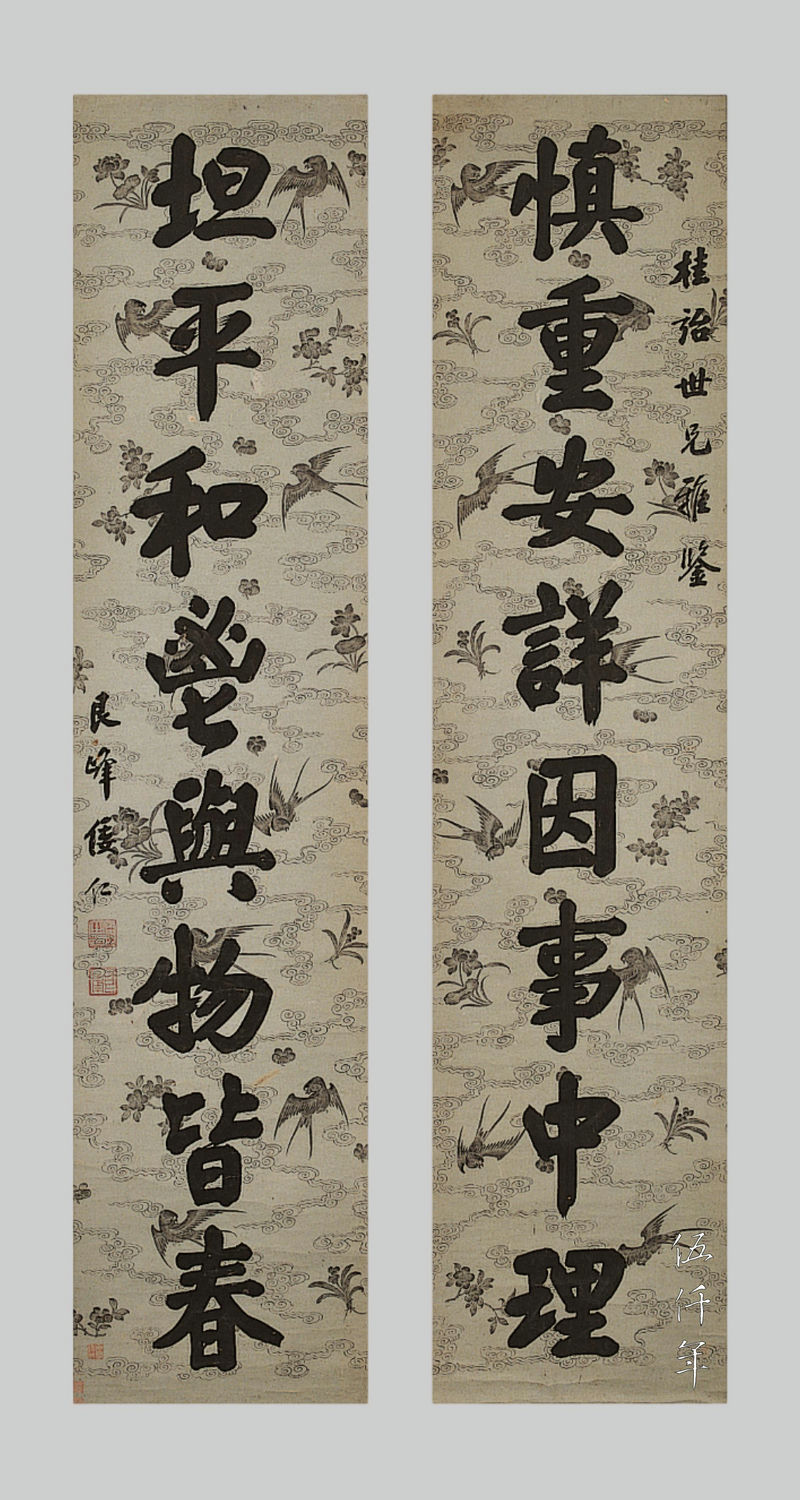 桂詒世兄雅鑒
慎重安詳因事中理
坦平和豈與物皆春
艮峰倭仁
伍仟年